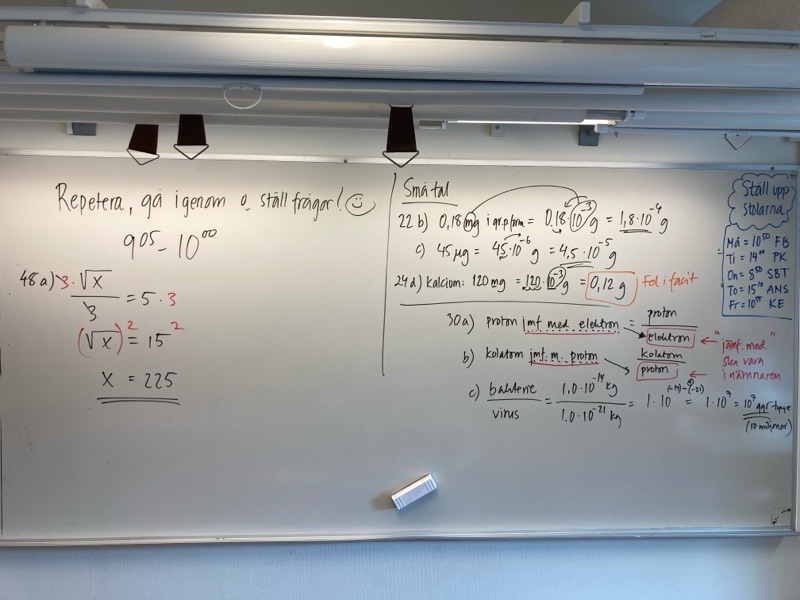 Repetera, gå igenom o. ställ frågor!
9⁰⁵ - 10⁰⁰
48a) 3 · √x / 3 = 5 · 3
(√x)² = 15²
x = 225
Små tal
22 b) 0,18 mg i gr.p.form = 0,18·10⁻³ g = 1,8·10⁻⁴ g
c) 45 μg = 45·10⁻⁶ g = 4,5·10⁻⁵ g
24 d) kalcium: 120 mg = 120·10⁻³ g = 0,12 g Fel i facit
30 a) proton jmf med elektron = proton / elektron ← "jämf. med" ska vara i nämnaren
b) kolatom jmf. m. proton kolatom / proton ←
c) bakterie / virus = 1,0·10⁻¹⁴ kg / 1,0·10⁻²¹ kg = 1·10⁽⁻¹⁴⁾⁻⁽⁻²¹⁾ = 1·10⁷ = 10⁷ ggr
(10 miljoner)
Ställ upp
stolarna
Må = 10⁵⁰ FB
PK
SBT
ANS
KE